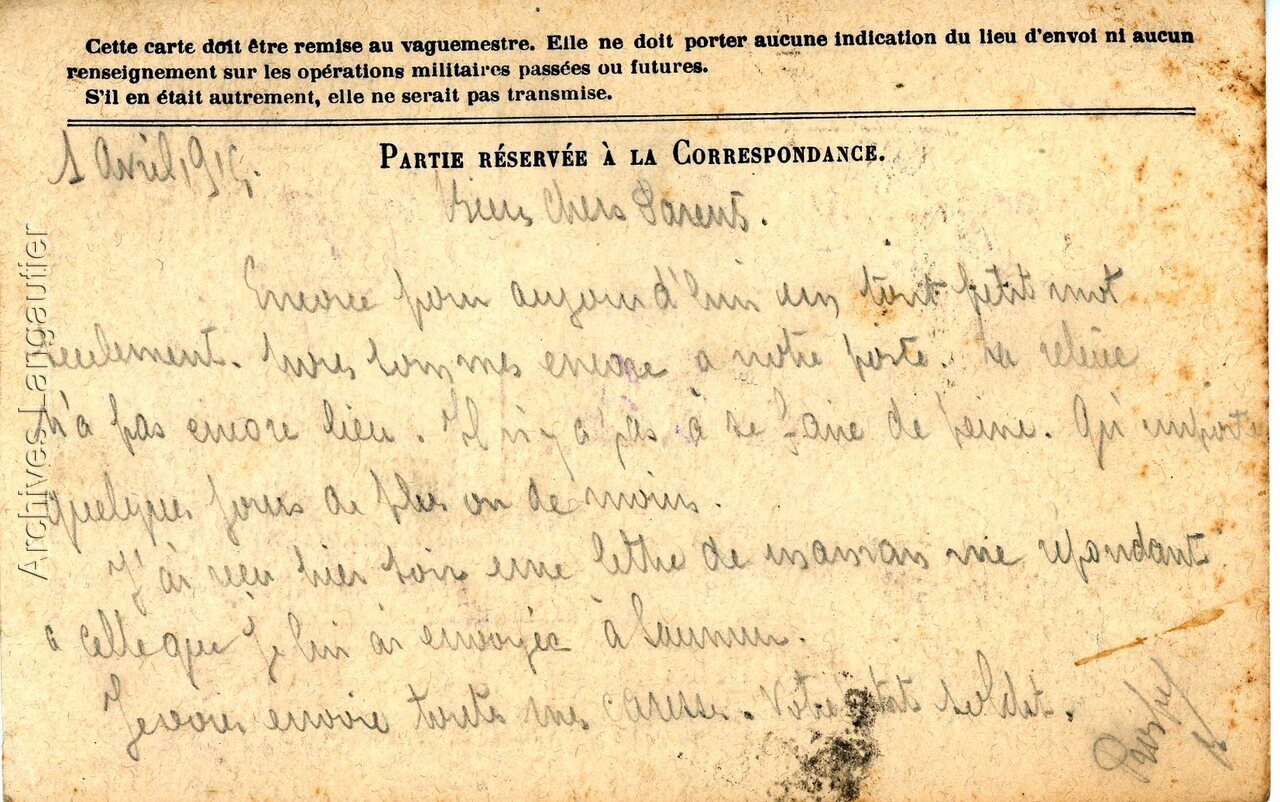 Cette carte doit être remise au vaguemestre. Elle ne doit porter aucune indication du lieu d'envoi ni aucun
renseignement sur les opérations militaires passées ou futures.
S'il en était autrement, elle ne serait pas transmise.
1 Avril 1915.
PARTIE RÉSERVÉE À LA CORRESPONDANCE.
Biens Chers Parent.
Encore pour aujourd'hui un tout petit mot
seulement. Nous sommes encore a notre poste. La relève
n'a pas encore lieu. Il n'y a pas à se faire de peine. Qu'importe
quelques jours de plus ou de moins.
J'ai reçu hier soir une lettre de maman me répondant
a celle que je lui ai envoyée à Saumur.
Je vous envoie toute mes caresses. Votre petit soldat.
Archives Langautier